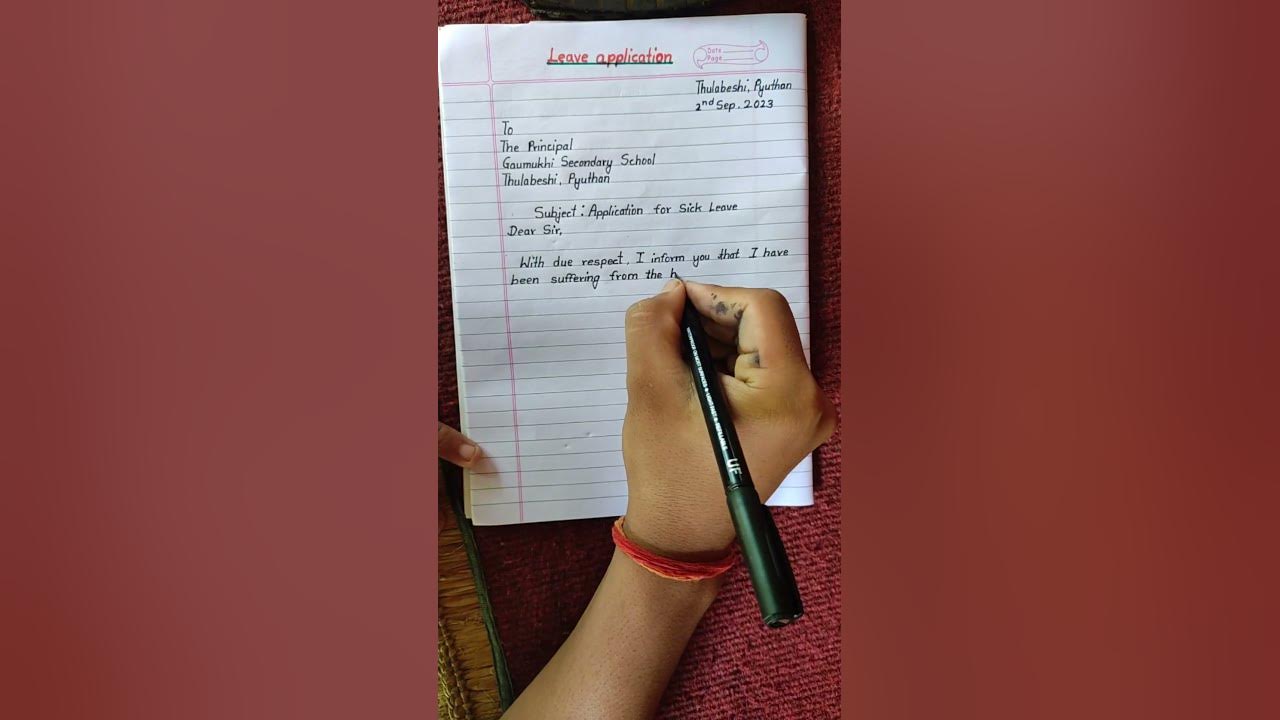 Leave application
Date
Page
Thulabeshi, Pyuthan
2nd Sep. 2023
To
The Principal
Gaumukhi Secondary School
Thulabeshi, Pyuthan
Subject: Application for Sick Leave
Dear Sir,
With due respect, I inform you that I have
been suffering from the h
UF